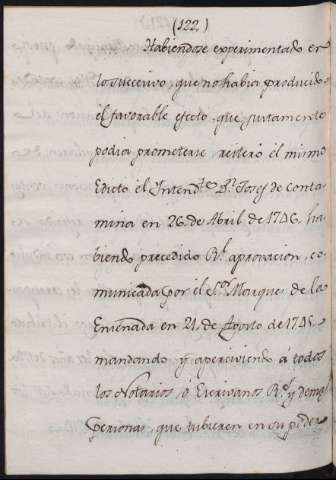 (122.)
Habiendose experimentado en
lo succesivo, que no habia producido
el favorable efecto, que justamente
podia prometerse, reiteró el mismo
Edicto el Intend.te D.n Josef de Conta
mina en 26 de Abril de 1746, ha
biendo precedido R.l aprovacion, co
municada por el S.or Marques de la
Ensenada en 21, de Agosto de 1745.
mandando y aperciviendo á todos
los Notarios, ó Escrivanos R.s y demas
Personas, que tubieren en su poder